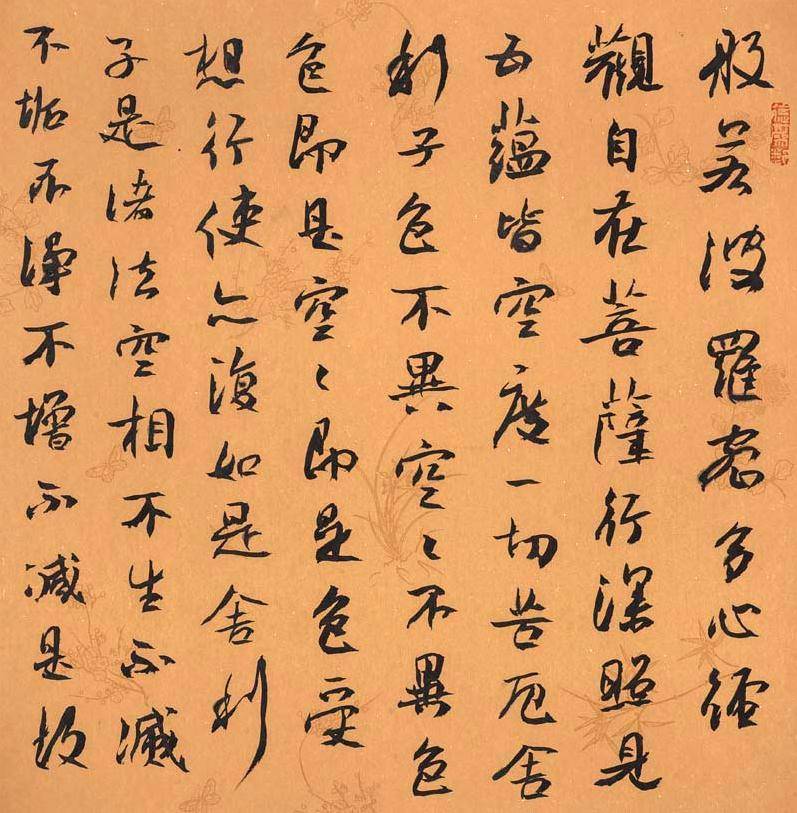 般若波羅蜜多心經
觀自在菩薩行深照見
五蘊皆空度一切苦厄舍
利子色不異空〻不異色
色即是空〻即是色受
想行使亦復如是舍利
子是諸法空相不生不滅
不垢不淨不增不減是故